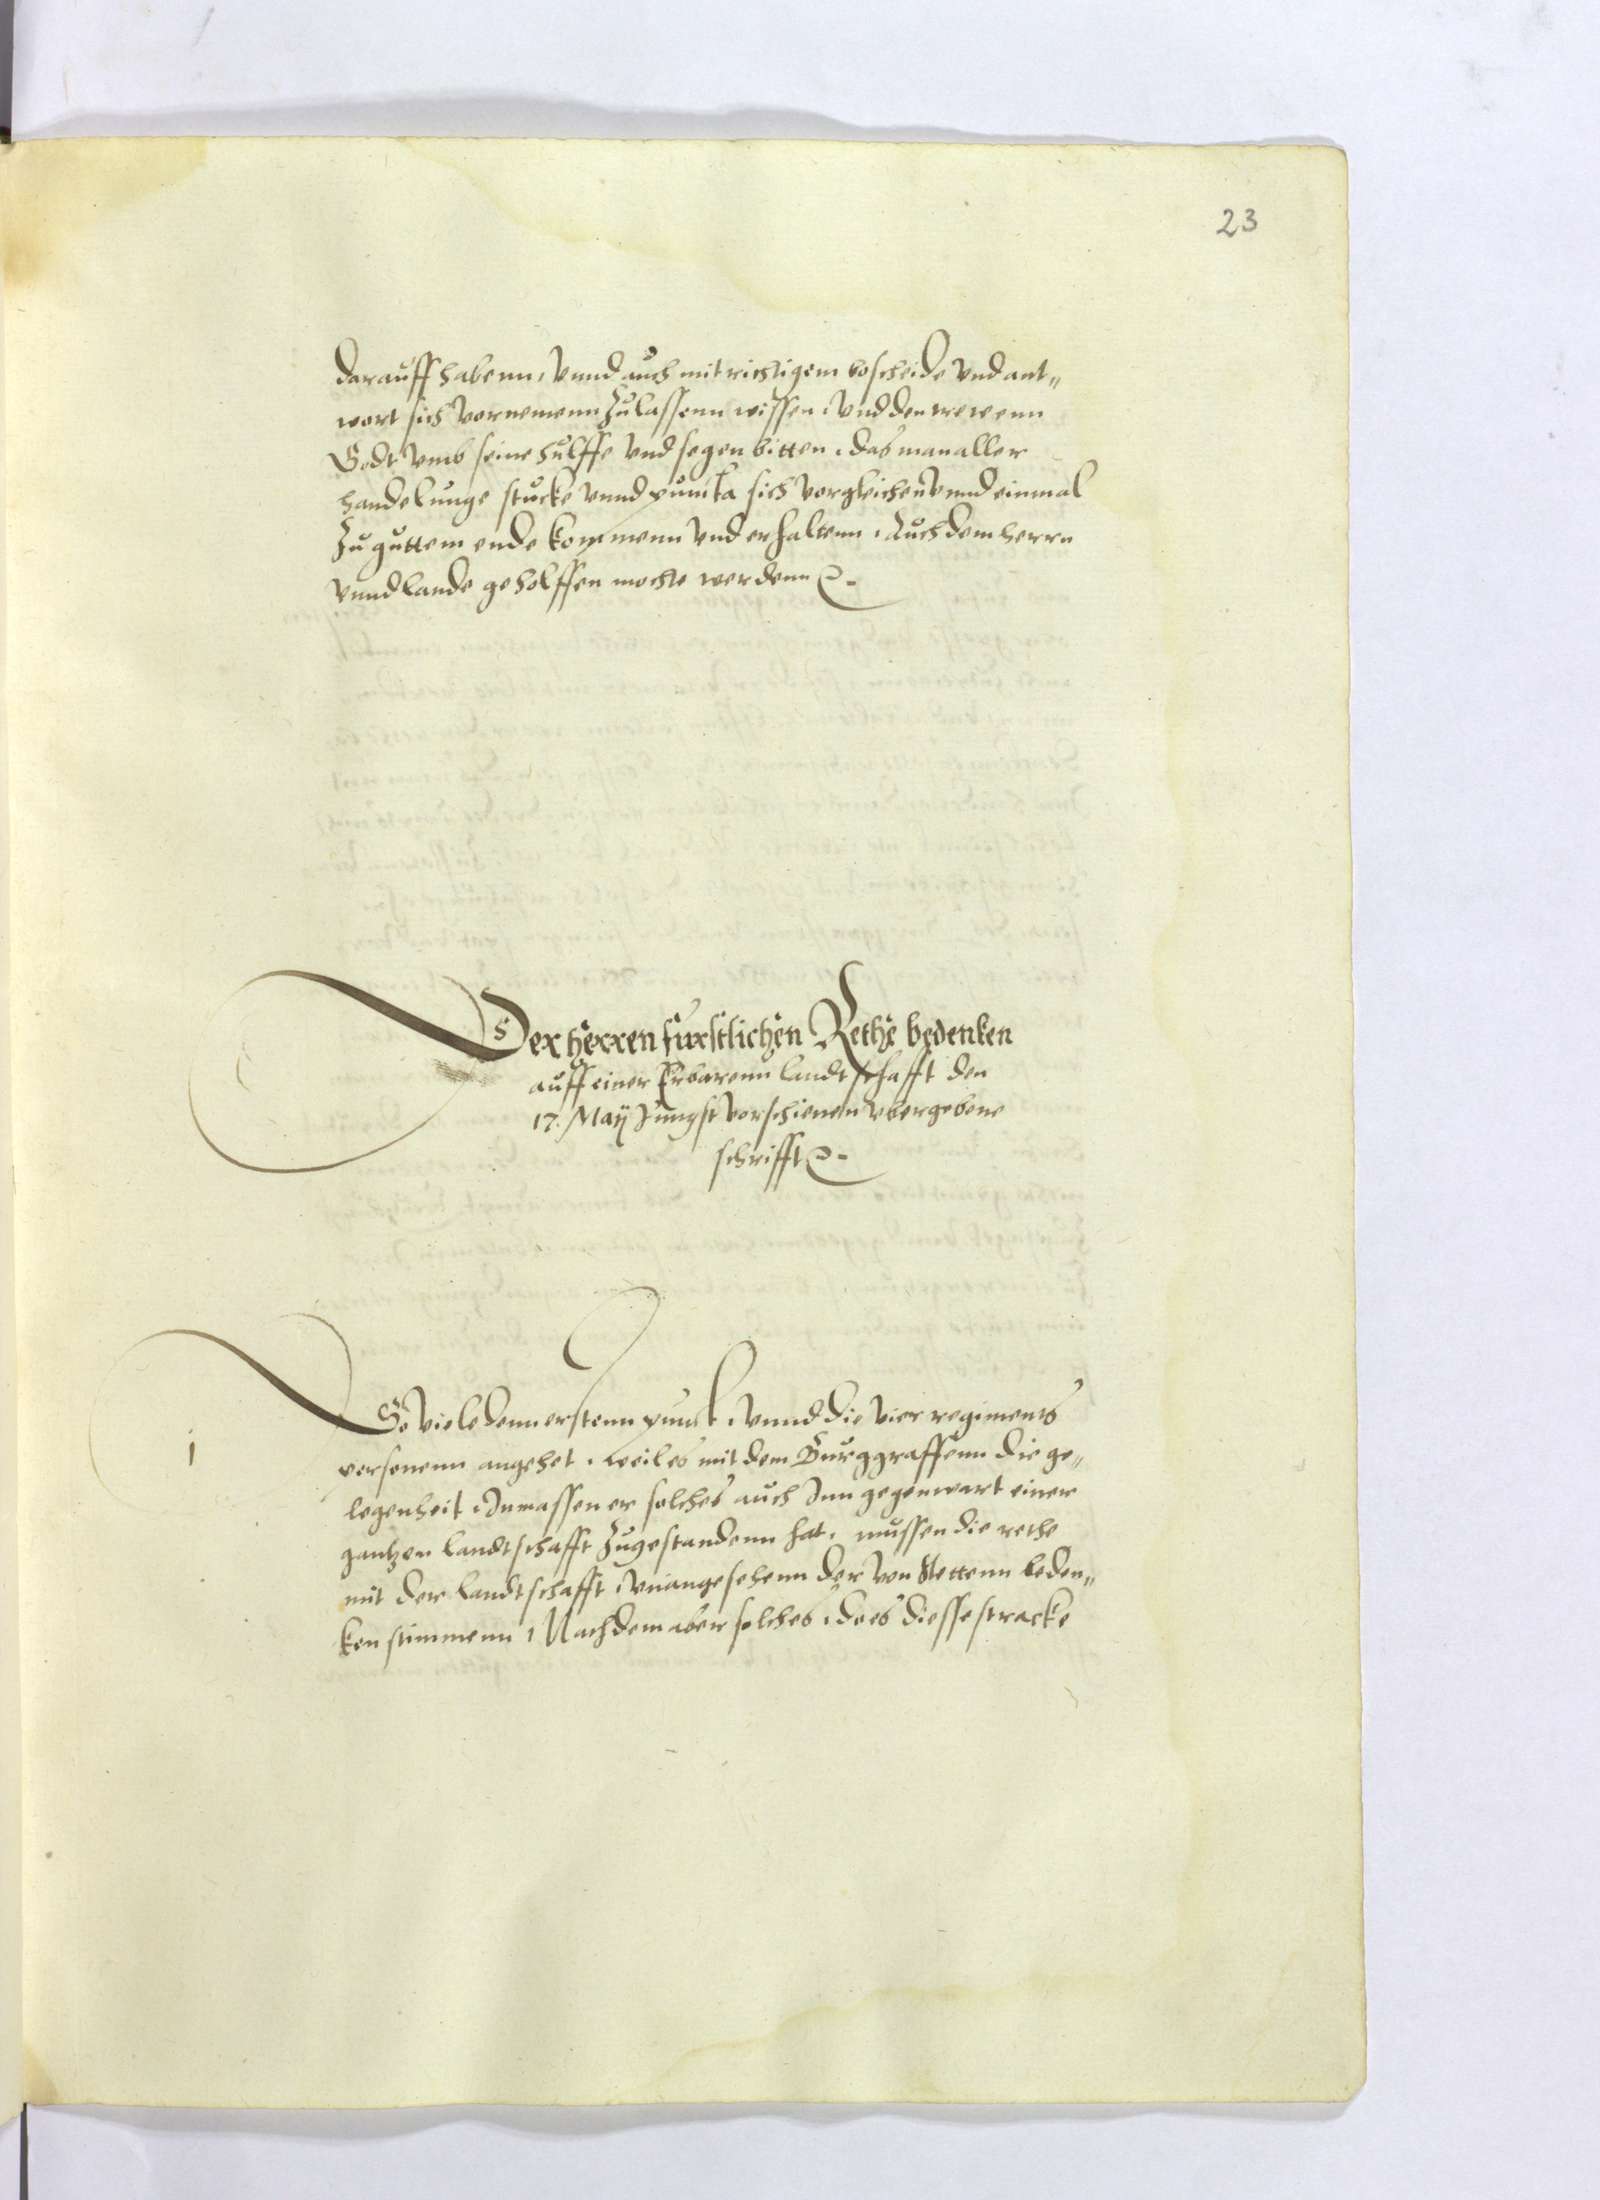 23
darauff habenn, vnnd auch mit richtigem bescheide vnd ant„
wort sich vornemenn zulassenn wissen, vnd den trewenn
Godt vmb seine hulffe vnd segen bitten, das man aller
handelunge stucke vnnd puncta sich vorgleichen vnnd einmal
zu guttem ende kommenn vnd erhaltenn, Auch dem herrn
vnnd lande geholffen mochte werdenn
Der herren furstlichen Rethe bedenken
auff einer Erbarenn landtschafft den
17. Maij Jungst vorschienen vbergebene
schrifft
So viele denn erstenn punct, vnnd die vier regiments
1
personenn angehet, weil es mit dem Burggraffenn die ge„
legenheit, Inmassen er solches auch Inn gegenwart einer
gantzen landtschafft zugestandenn hat, mussen die rethe
mit der landtschafft, vnangesehenn der von Stettenn beden„
ken stimmenn, Nachdem aber solches, des diesse stracke